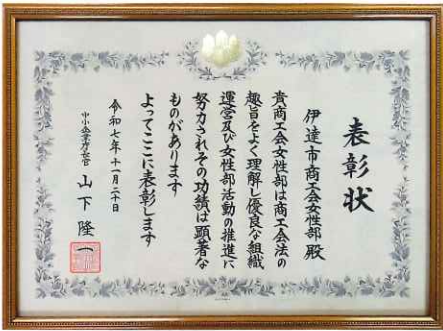 表彰状
伊達市商工会女性部 殿
貴商工会女性部は商工会法の
趣旨をよく理解し優良な組織
運営及び女性部活動の推進に
努力されその功績は顕著な
ものがあります
よってここに表彰します
令和七年十一月二十日
中小企業庁長官 山下 隆一